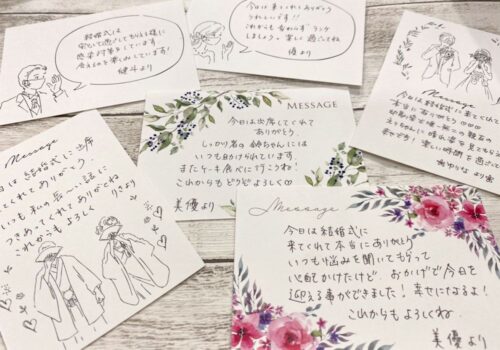 結婚式は
安心して過ごしてもらえる様に
感染対策をしています!
会えるのを楽しみにしています!
健斗より
今日は来てくれてありがとう
うれしいです!!
これからも変わらず
しましょう。楽しく過ごしてね
優より
Message
今日は結婚式に来てくれて
本当にありがとう
より
MESSAGE
今日は出席してくれて
ありがとう。
しっかり者の姉ちゃんには
いつも助けられています。
またケーキ食べに行こうね!
これからもどうぞよろしく♡
美優より
Message
今日は結婚式に出席
してくれてありがとう。
いつも私の長〜い話に
つきあってくれてありがとね
これからもよろしく
りさより
Message
今日は結婚式に
来てくれて本当にありがとう
いつも悩みを聞いてもらって
心配かけたけど、おかげで今日を
迎える事ができました!幸せになるよ!
これからもよろしくね
美優より